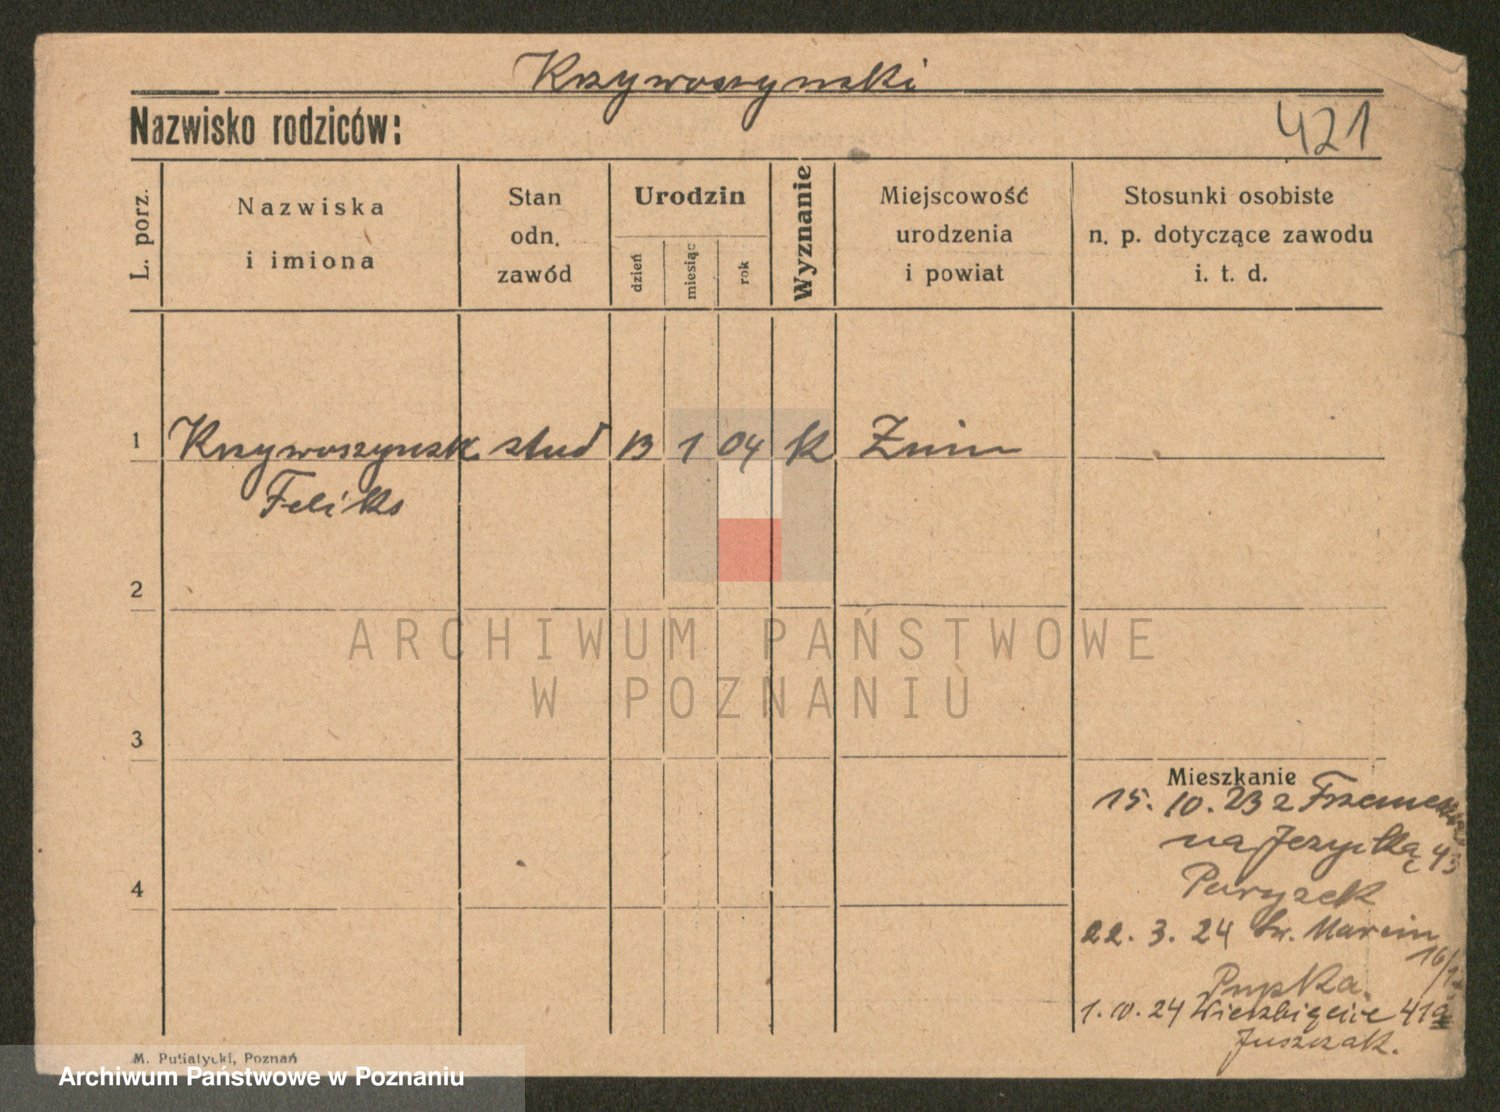 Krzywoszynski
Nazwisko rodziców:
421
L. porz.
Nazwiska
i imiona
Stan
odn.
zawód
Urodzin
dzień
miesiąc
rok
Wyznanie
Miejscowość
urodzenia
i powiat
Stosunki osobiste
n. p. dotyczące zawodu
i. t. d.
1
Krzywoszynsk stud 13 1 04 k Znin
Feliks
2
ARCHIWUM PAŃSTWOWE
W POZNANIU
3
Mieszkanie
15. 10. 23 z
na Jezycką 43
Paryzek
4
22. 3. 24 Św. Marcin
16/
Pupka.
1. V. 24 Wierzbięcice 41a
Juszczak.
M. Putiatycki, Poznań
Archiwum Państwowe w Poznaniu